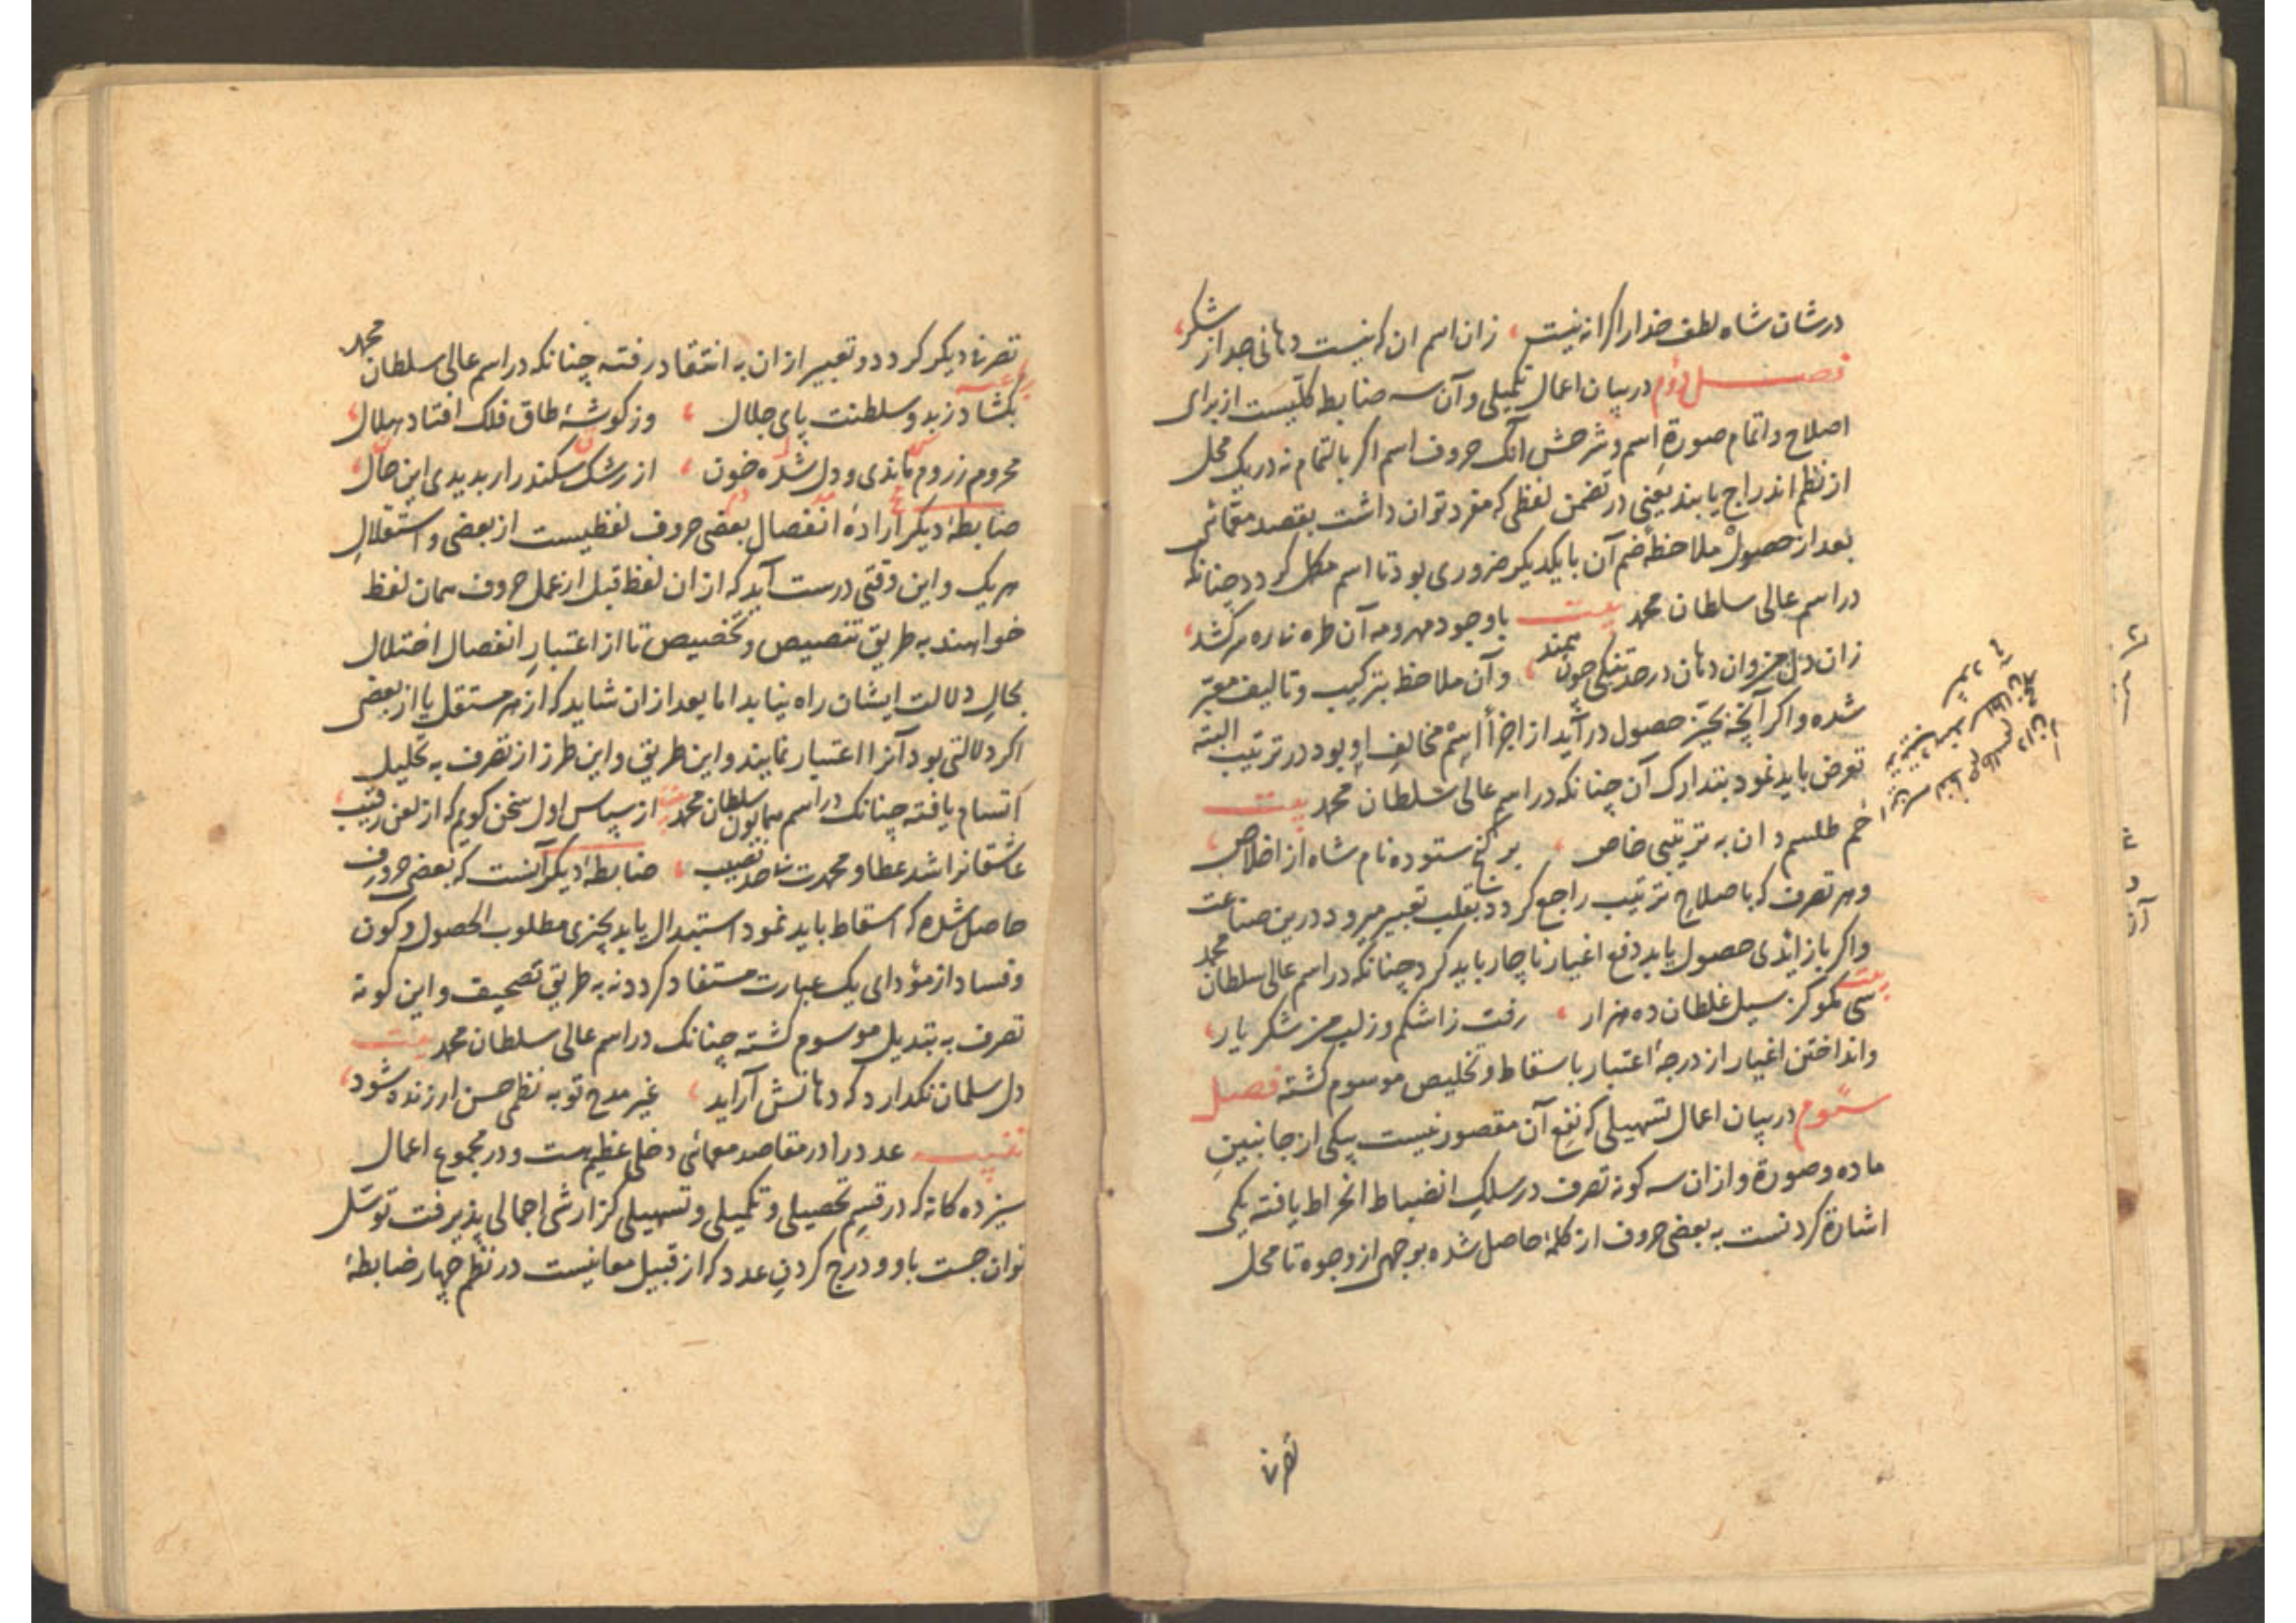 درشان شاه لطف خدارا کرانه نیست، زان اسم ان که نیست دهانی جدا از شکر،
فصل دوم در بیان اعمال تکمیلی و آن سه ضابطه کلیست از برای
اصلاح و اتمام صورة اسم و شرحش آنک حروف اسم اکر بالتمام نه در یک محل
از نظم اندراج یابند یعنی در تضمن لفظی که مفرد توان داشت بقصد معمائی
بعد از حصول ملاحظهٔ ضم آن با یکدیکر ضروری بود تا اسم مکمل کردد چنانکه
در اسم عالی سلطان محمد بیت باوجود مهر و مه آن طره نارد سر کشد،
زان دل من وان دهان در حد تنکی چون نهند، و آن ملاحظه بترکیب و تالیف معبر
شده و اکر آنچه بحیز حصول در آید از اجزأ اسم مخالف او بود در ترتیب البته
تعرض باید نمود بتدارک آن چنانکه در اسم عالی سلطان محمد بیت
خم طلسم دان به ترتیبی خاص، بر کنج ستوده نام شاه از اخلاص،
و هر تصرف که باصلاح ترتیب راجع کردد بقلب تعبیر میرود درین صناعت
و اکر باز ائدی حصول یابد دفع اغیار ناچار باید کرد چنانکه در اسم عالی سلطان محمد
بیت سی مکو کز سیل غلطان ده هزار، رفت ز اشکم وز لب من شکر یار،
و انداختن اغیار از درجهٔ اعتبار باسقاط و تخلیص موسوم کشته فصل
سوم در بیان اعمال تسهیلی که نفع آن مقصور نیست بیکی از جانبین
ماده و صورة و ازان سه کونه تصرف در سلک انضباط انخراط یافته یکی
اشارة کردنست به بعضی حروف از کلمهٔ حاصل شده بوجهی از وجوه تا محل
تصرف
تصرف دیکر کردد و تعبیر ازان به انتقاد رفته چنانکه در اسم عالی سلطان محمد
بکشاد ز بد و سلطنت پای جلال، وز کوشهٔ طاق فلک افتاد هلال،
محروم ز روم ماندی و دل شده خون، از رشک سکندر ار بدیدی این حال،
ضابطهٔ دیکر ارادهٔ انفصال بعضی حروف لفظیست از بعضی و استقلال
هریک و این وقتی درست آید که ازان لفظ قبل از عمل حروف همان لفظ
خواهند به طریق تنصیص و تخصیص تا از اعتبار انفصال اختلال
بحال دلالت ایشان راه نیابد اما بعد ازان شاید که از هر مستقل یا از بعضی
اکر دلالتی بود آنرا اعتبار نمایند و این طریق و این طرز از تصرف به تحلیل
اتسام یافته چنانک در اسم همایون سلطان محمد بیت از سپاس اول سخن کویم که از لعن رقیب،
عاشقانرا شد عطا و محمدت شاحد نصیب، ضابطهٔ دیکر آنست که بعضی حروف
حاصل شده که اسقاط باید نمود استبدال یابد بچیزی مطلوب الحصول و کون
و فساد از مؤدای یک عبارت مستفاد کردد نه به طریق تصحیف و این کونه
تصرف به تبدیل موسوم کشته چنانک در اسم عالی سلطان محمد بیت
دل سلمان نکدارد که دهانش آراید، غیر مدح تو به نظمی حسن ار زنده شود،
تنبیه عدد را در مقاصد معمائی دخلی عظیم هست و در مجموع اعمال
سیزده کانه که در قسم تحصیلی و تکمیلی و تسهیلی کزارشی اجمالی پذیرفت توسل
توان جست باو و درج کردن عدد که از قبیل معانیست در نظم چهار ضابطهٔ